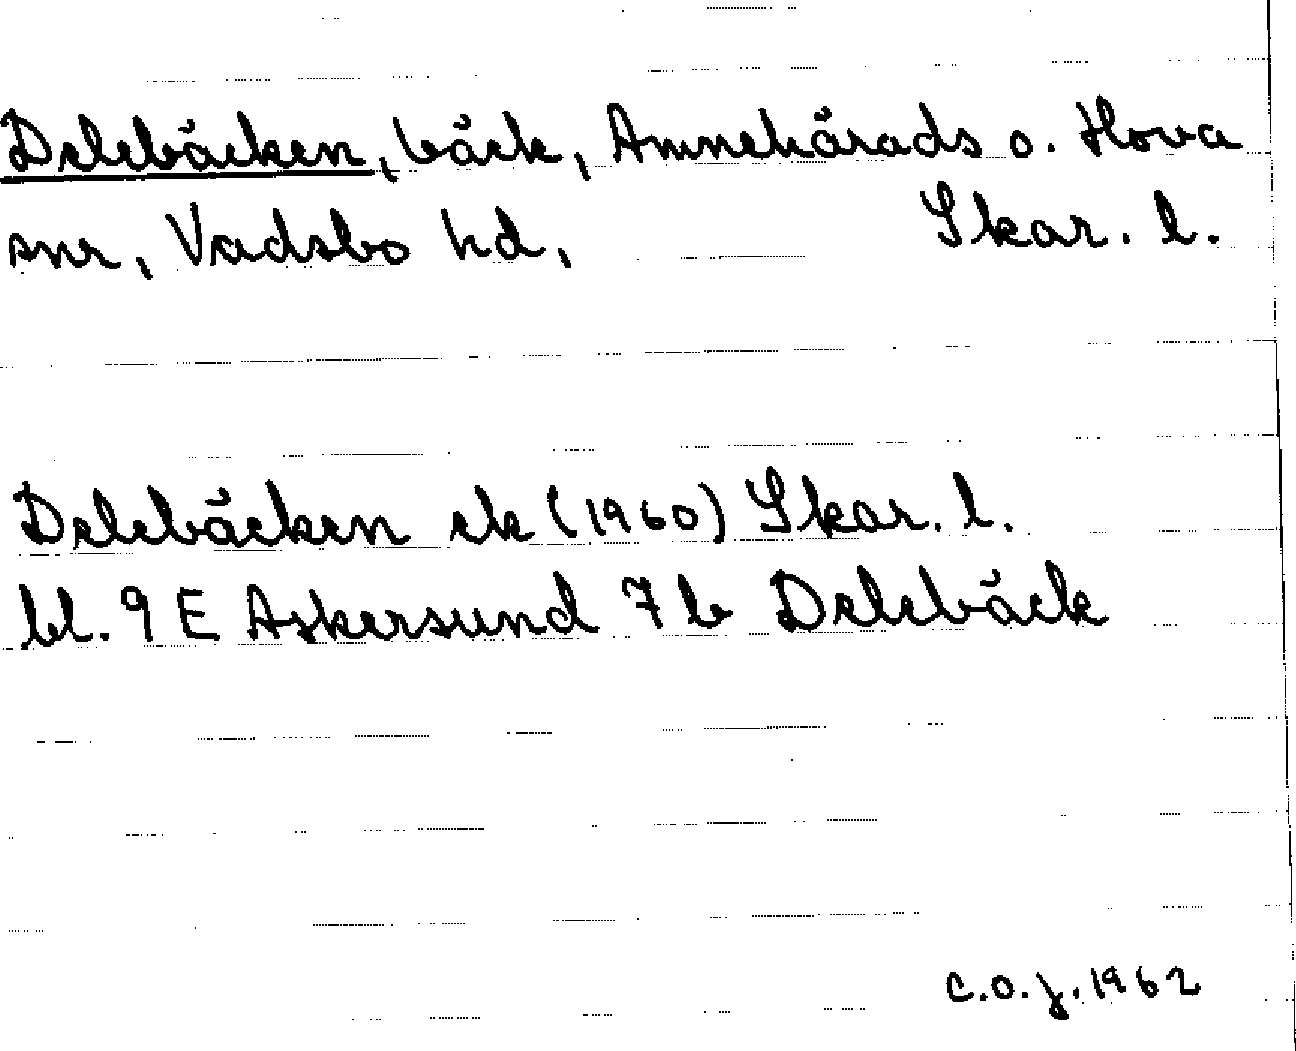 Delebäcken, bäck, Amnehärads o. Hova
snr, Vadsbo hd, Skar. l.
Delebäcken ek (1960) Skar. l.
bl. 9 E Askersund 7 b Delebäck
C.O.J. 1962